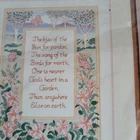 The kiss of the
Sun for pardon.
The song of the
Birds for mirth.
One is nearer
God's heart in a
Garden.
Than anywhere
Else on earth.